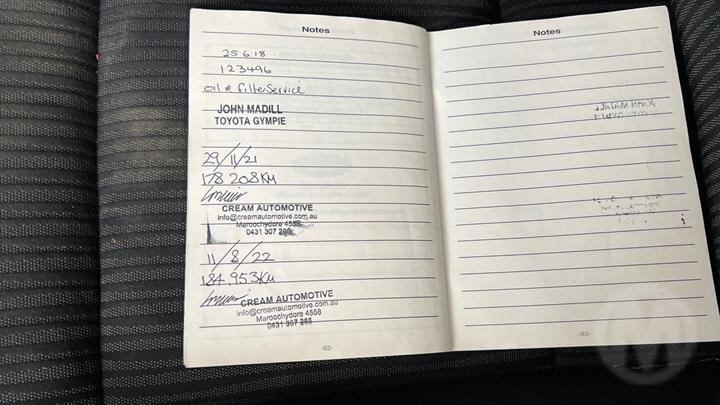 Notes
25.6.18
123496
oil & filter Service
JOHN MADILL
TOYOTA GYMPIE
29/11/21
178 208KM
CREAM AUTOMOTIVE
info@creamautomotive.com.au
Maroochydore 4558
0431 307 266
11/8/22
184,953KM
CREAM AUTOMOTIVE
info@creamautomotive.com.au
Maroochydore 4558
0431 307 266
-82-
Notes
-83-